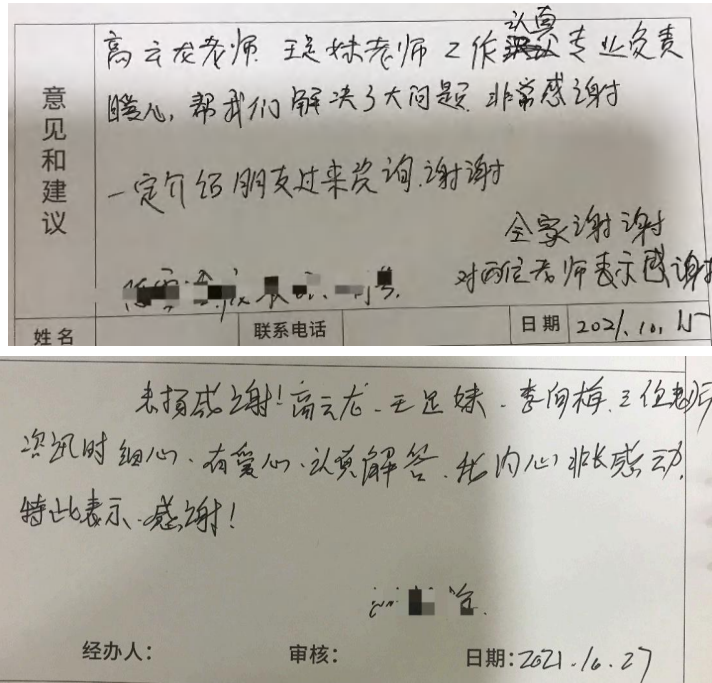 意见和建议
高云龙老师 王足妹老师工作认真专业负责
暖人,帮我们解决了大问题 非常感谢
一定介绍朋友过来咨询.谢谢
全家谢谢
对两位老师表示感谢
姓名
联系电话
日期 2021.10.15
表扬感谢!高云龙、王足妹、李向梅三位老师
咨讯时细心、有爱心、认真解答、我内心非长感动,
特此表示、感谢!
经办人:
审核:
日期:2021.10.27